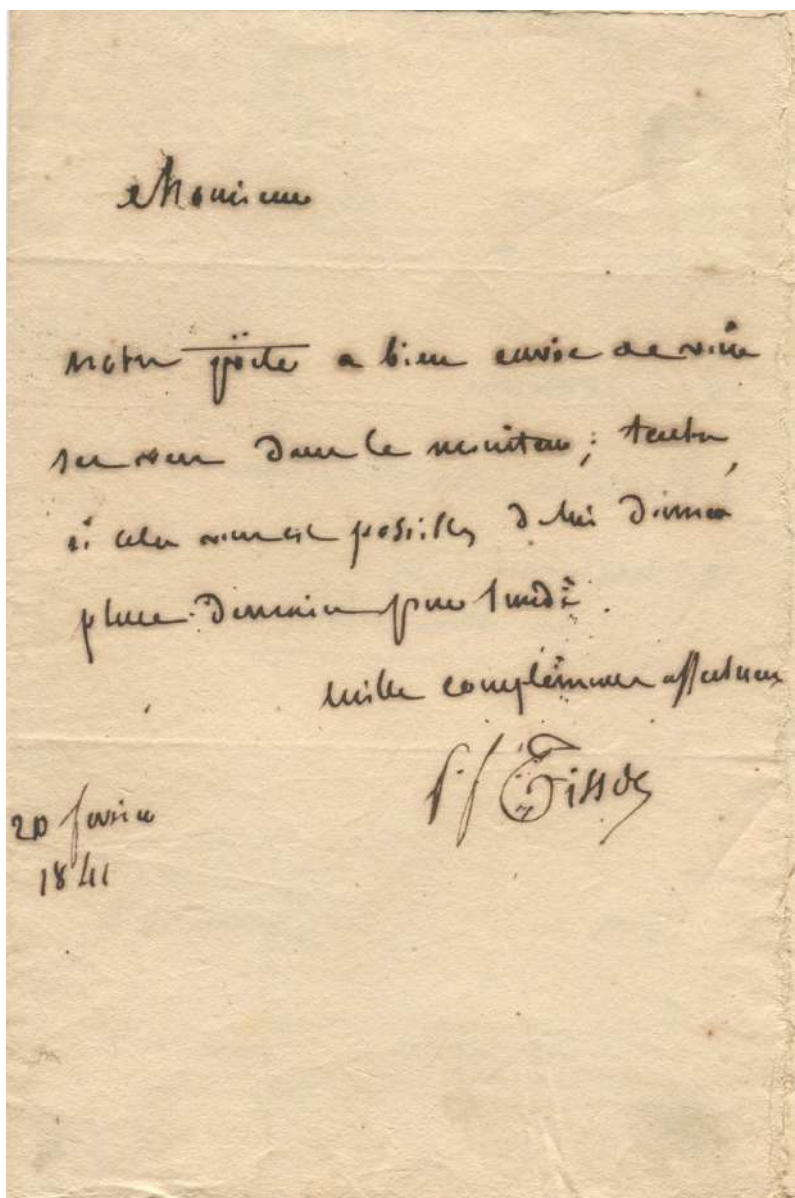 Monsieur
notre poëte a bien envie de voir
ses vers dans le moniteur ; tentez,
si cela vous est possible, de lui donner
place demain pour lundi.
mille complémens affectueux
P f Tissot
20 fevrier
1841